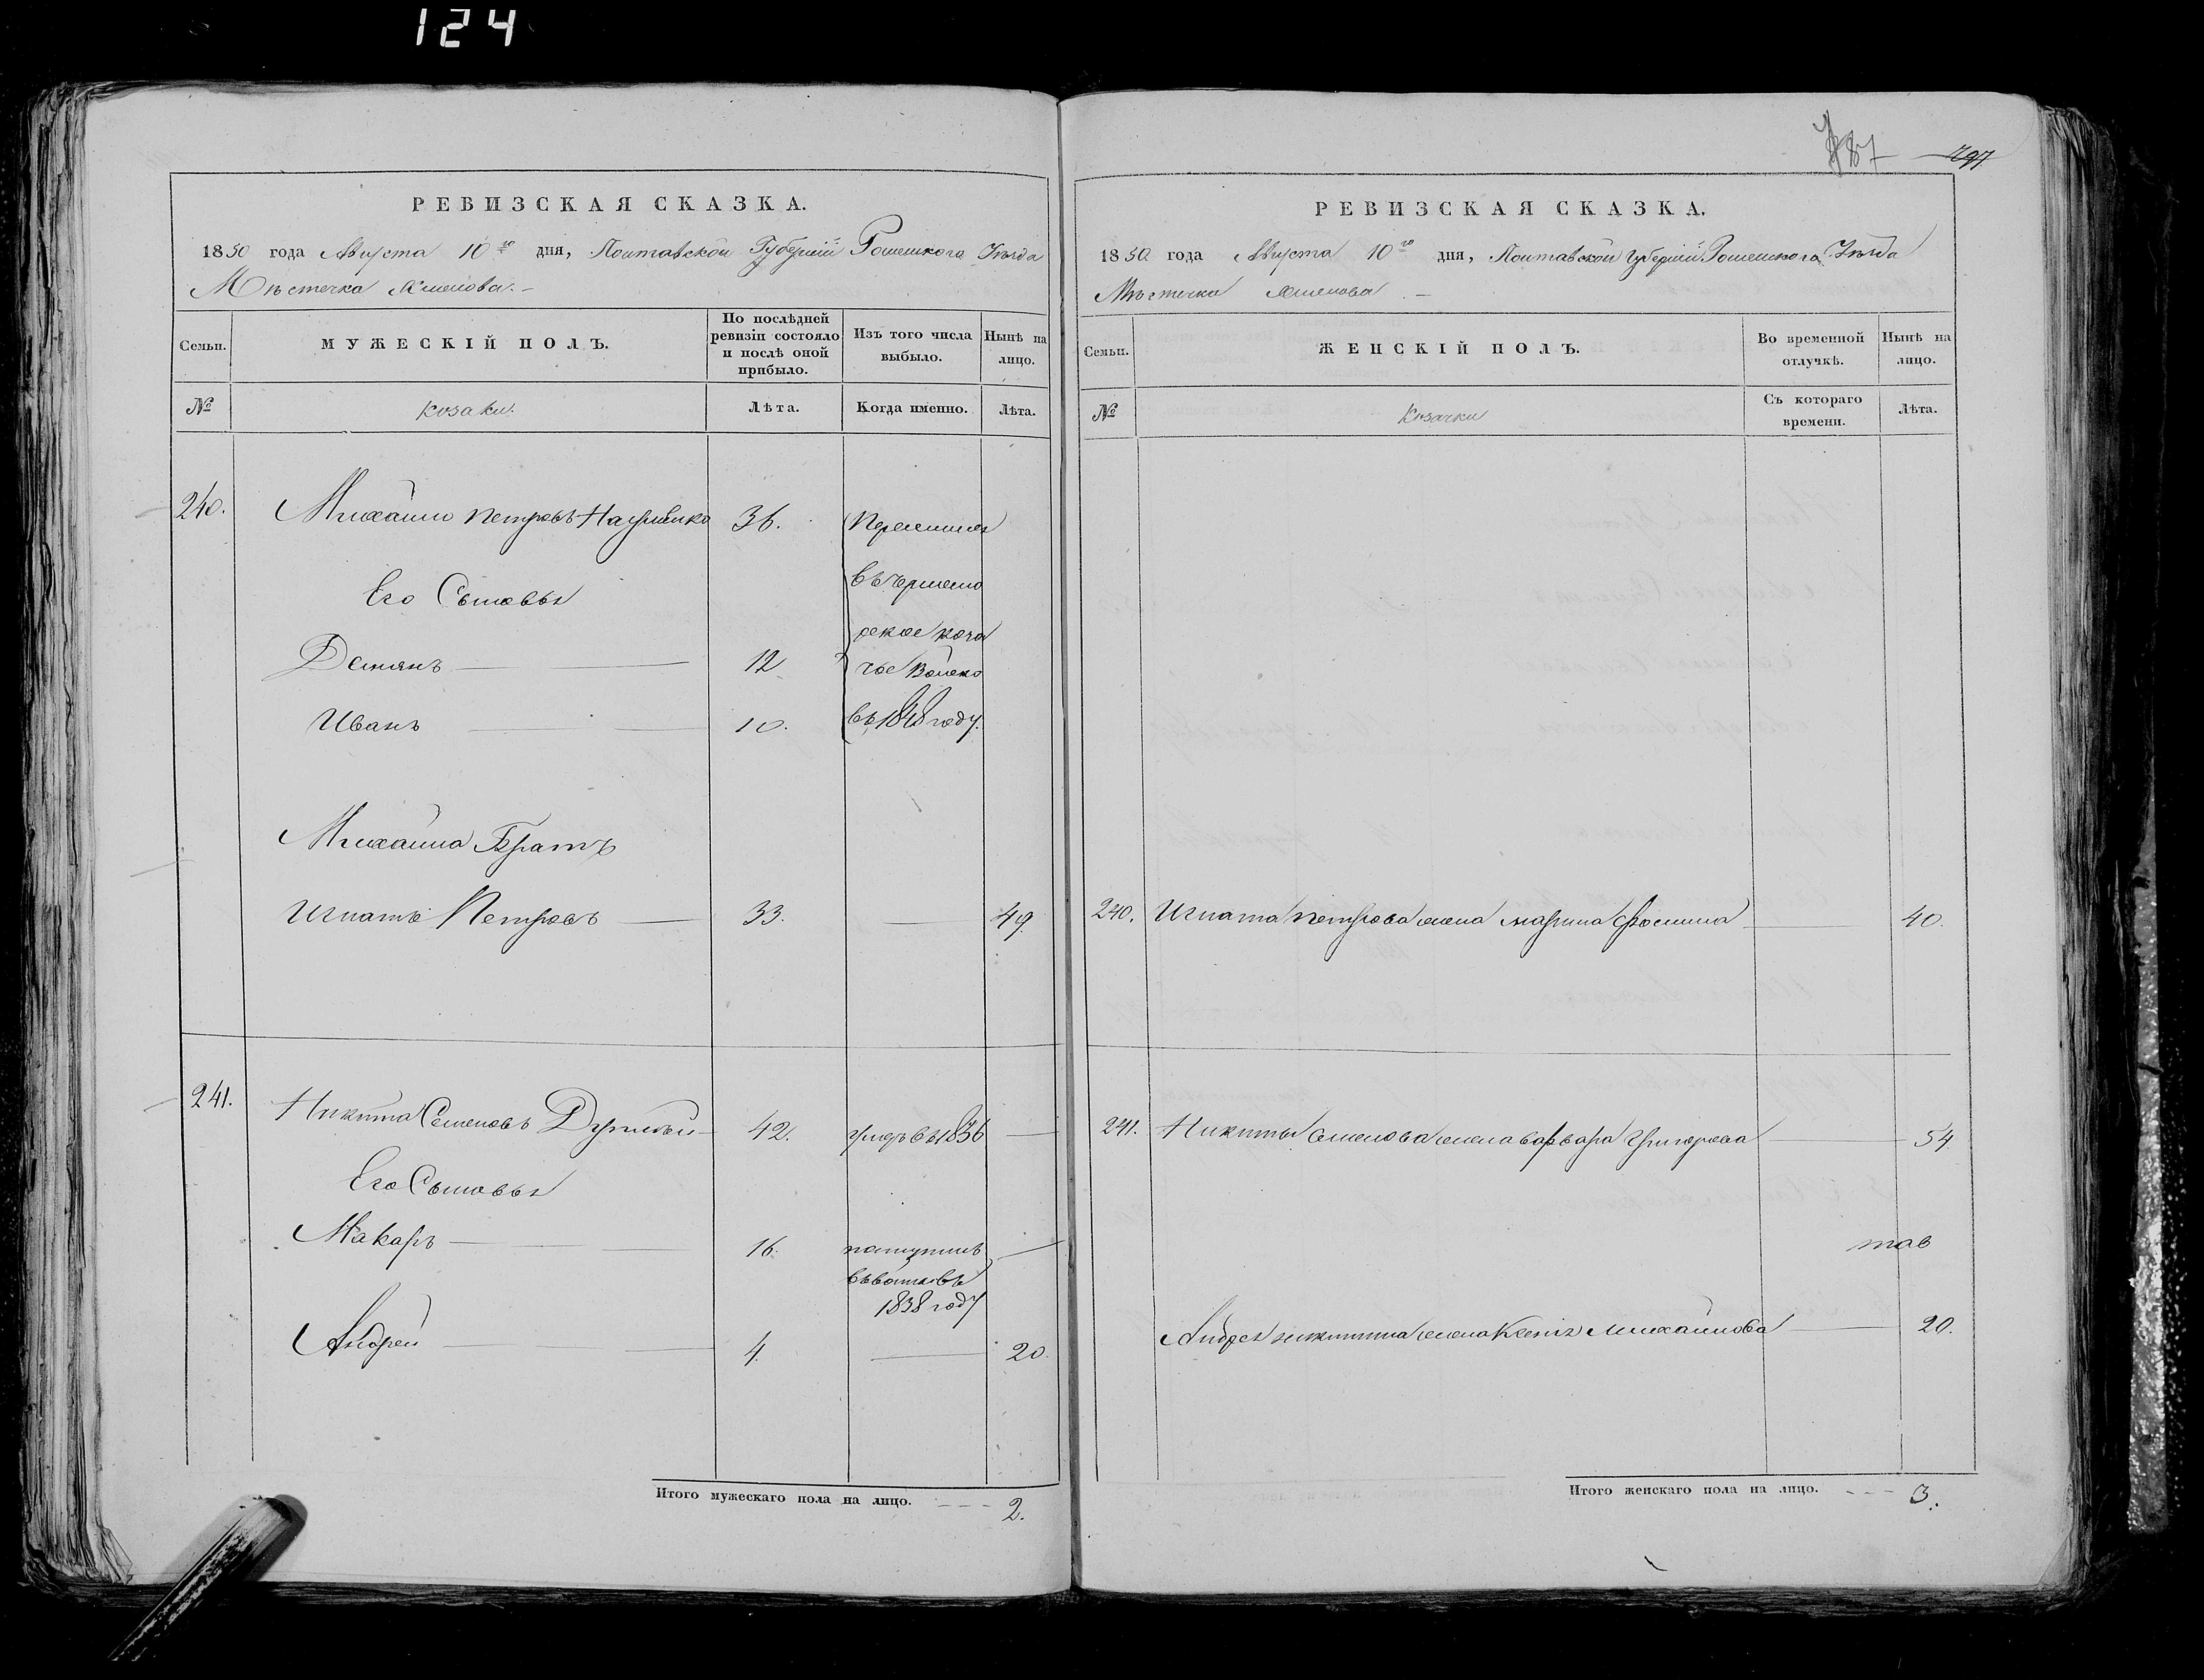 124
РЕВИЗСКАЯ СКАЗКА.
1850 года Августа 10го дня, Полтавской Губерніи Роменского Уѣзда
Мѣстечка
Семьи.
МУЖЕСКІЙ ПОЛЪ.
По послѣдней ревизіи состояло и послѣ оной прибыло.
Изъ того числа выбыло.
Нынѣ на лицо.
№
козаки.
Лѣта.
Когда именно.
Лѣта.
240.
Михайло Петровъ
36.
Переселился
въ Черномо
рское каза
чье Войско
въ 1848 году.
Его Сыновья
Демянъ
12
Иванъ
10.
Михайла Братъ
Игнатъ Петровъ
33.
49.
241.
Никита Семеновъ
42.
умеръ въ 1836
Его Сыновья
Макаръ
16.
1838 году
Андрей
4.
20.
Итого мужескаго пола на лицо.
2.
787
797
РЕВИЗСКАЯ СКАЗКА.
1850 года Августа 10го дня, Полтавской Губерніи Роменского Уѣзда
Мѣстечка
Семьи.
ЖЕНСКІЙ ПОЛЪ.
Во временной отлучкѣ.
Нынѣ на лицо.
№
Козачки
Съ котораго времени.
Лѣта.
240.
Игната Петрова жена Марина Фомина
40.
241.
Никиты Семенова жена Варвара Григорева
54.
Андрея Никитина жена Ксенія Михайлова
20.
Итого женскаго пола на лицо.
3.